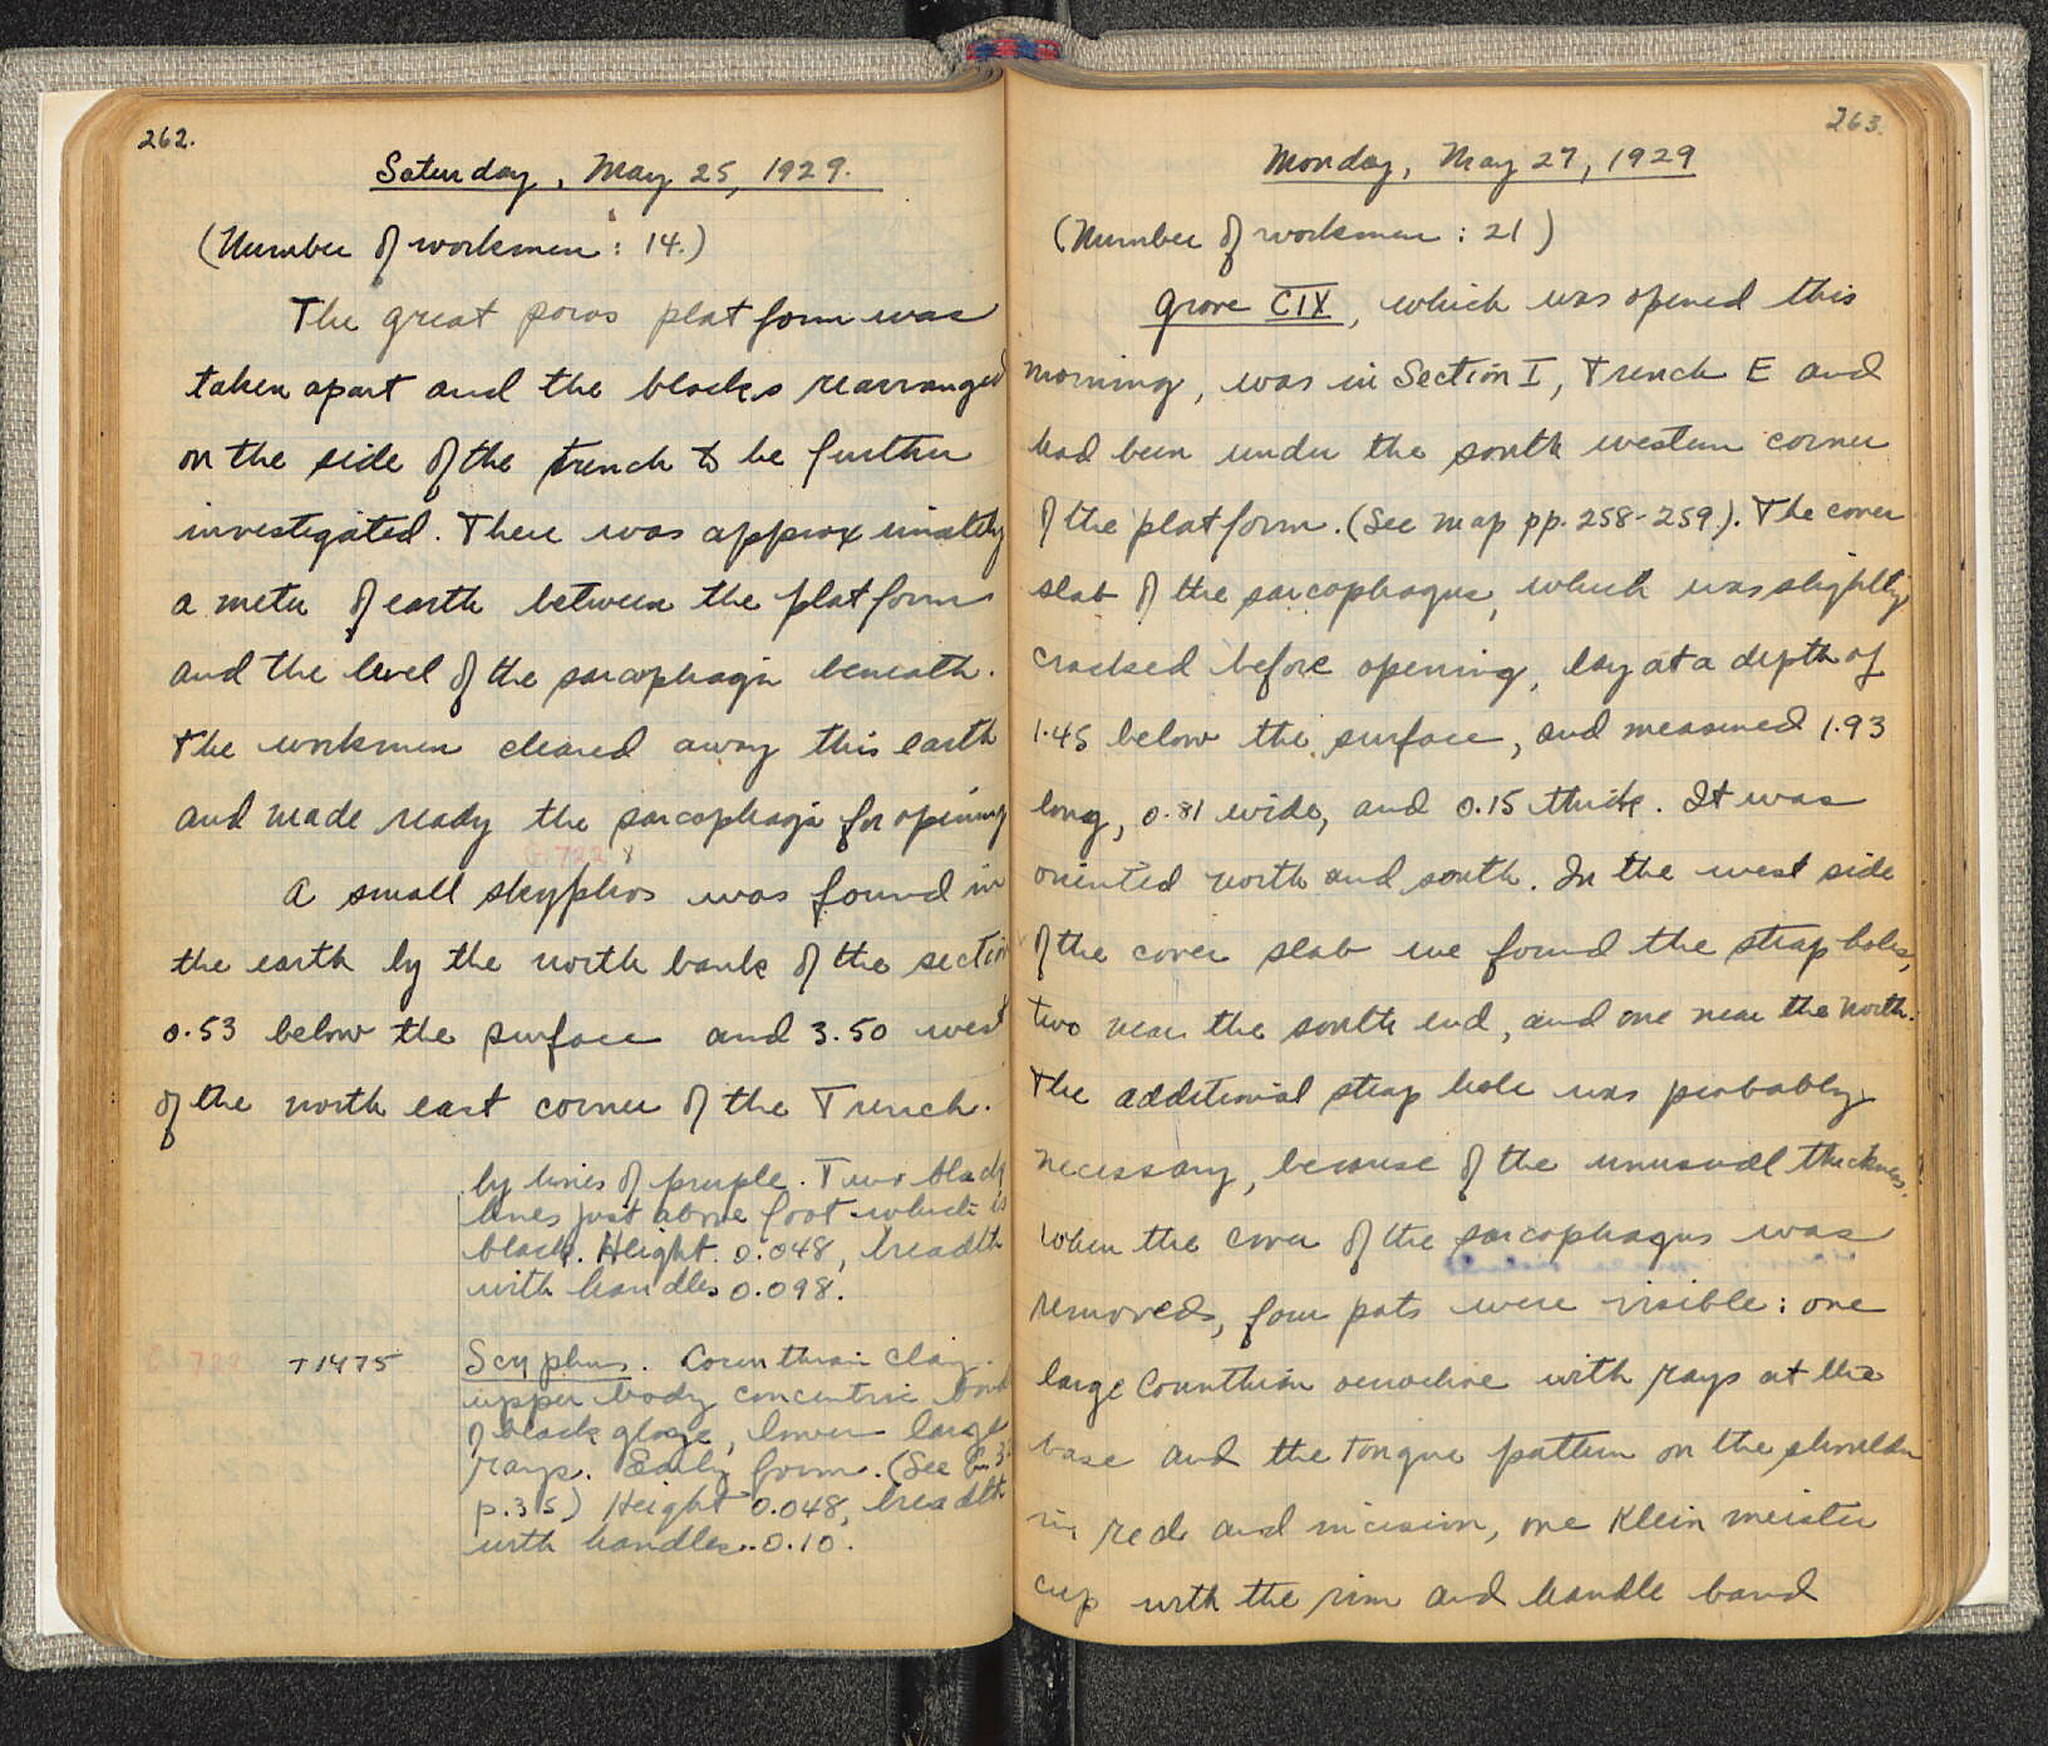 262.
Saturday, May 25, 1929.
(Number of workmen: 14.)
The great poros platform was
taken apart and the blocks rearranged
on the side of the trench to be further
investigated. There was approximately
a meter of earth between the platform
and the level of the sarcophagi beneath.
The workmen cleared away this earth
and made ready the sarcophagi for opening
C.722
A small skyphos was found in
the earth by the north bank of the section
0.53 below the surface and 3.50 west
of the north east corner of the Trench.
by lines of purple. Two black
lines just above foot which is
black. Height 0.048, breadth
with handles 0.098.
T1475
Scyphus. Corinthian clay.
upper body concentric bands
of black glaze, lower large
rays. Early form. (See
p.35) Height 0.048, breadth
with handles 0.10.
263.
Monday, May 27, 1929
(Number of workmen: 21)
Grave CIX, which was opened this
morning, was in Section I, Trench E and
had been under the south western corner
of the platform. (See map pp. 258-259). The cover
slab of the sarcophagus, which was slightly
cracked before opening, lay at a depth of
1.45 below the surface, and measured 1.93
long, 0.81 wide, and 0.15 thick. It was
oriented north and south. In the west side
of the cover slab we found the strap holes,
two near the south end, and one near the north.
The additional strap hole was probably
necessary, because of the unusual thickness.
When the cover of the sarcophagus was
removed, four pots were visible: one
large Corinthian oenochoe with rays at the
base and the tongue pattern on the shoulder
in red and incision, one Klein meister
cup with the rim and handle band